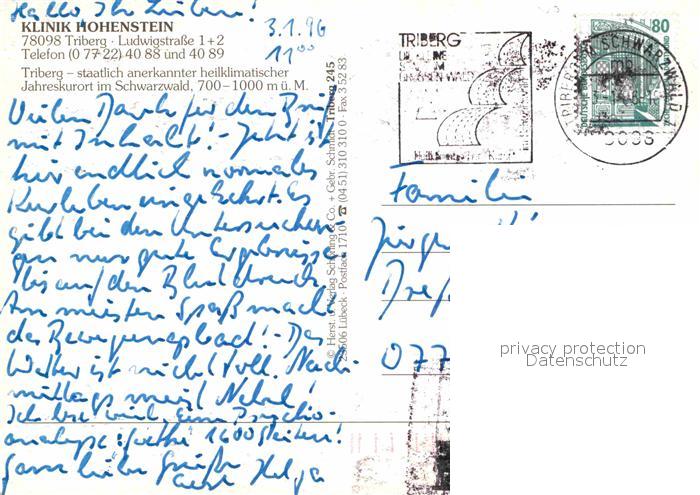 Hallo, Ihr Lieben!
KLINIK HOHENSTEIN
78098 Triberg · Ludwigstraße 1+2
Telefon (0 77 22) 40 88 und 40 89
3.1.96
11⁰⁰
Triberg – staatlich anerkannter heilklimatischer
Jahreskurort im Schwarzwald, 700–1000 m ü. M.
Vielen Dank für den Brief
mit Inhalt! – Jetzt ist
hier endlich normales
Kurleben eingekehrt. Es
gibt bei den Untersuchun-
gen nur gute Ergebnisse
bis auf den Blutdruck.
Am meisten Spaß macht
das Bewegungsbad! – Das
Wetter ist nicht toll. Nach-
mittags meist Nebel!
Ich lese viel. Eine Psycho-
analyse: Goethe 1600 Seiten!
Ganz liebe Grüße
Helga
© Herst. u. Verlag Schöning & Co. + Gebr. Schmidt Triberg 245
23506 Lübeck · Postfach 1710 ☎ (04 51) 310 310 · Fax 3 52 83
TRIBERG
80
TRIBERG IM SCHWARZWALD 1
Familie
Jürg
Dre
077
privacy protection
Datenschutz